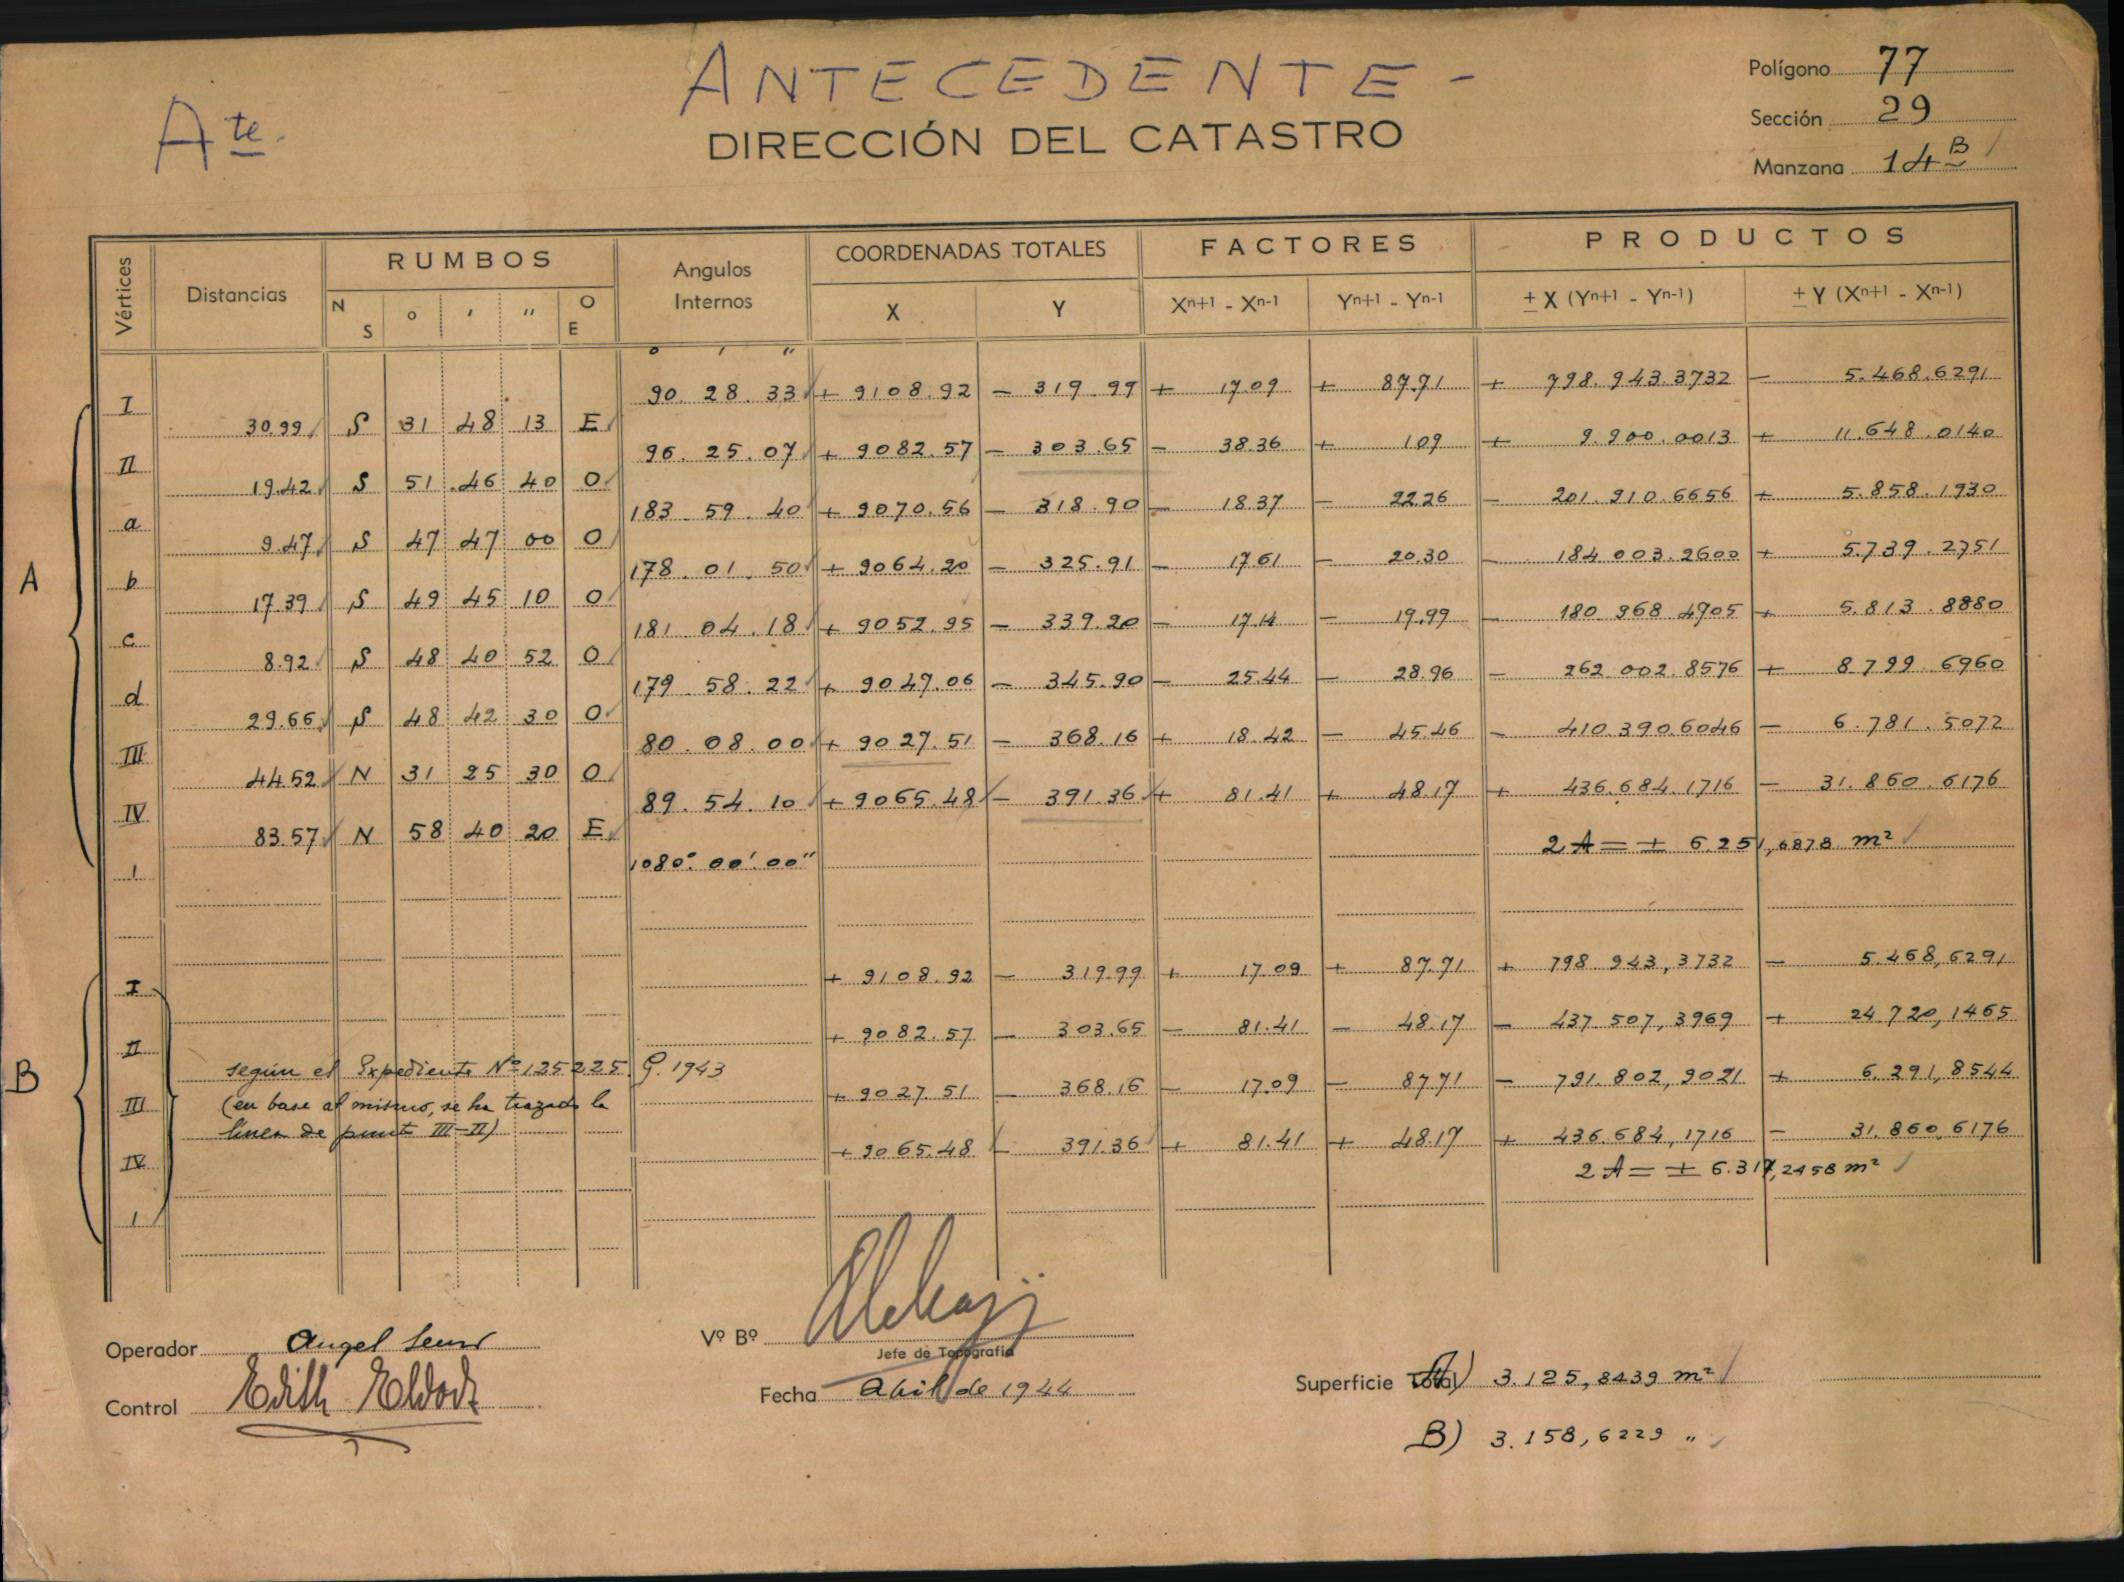 ANTECEDENTE -
Ate.
DIRECCIÓN DEL CATASTRO
Polígono 77
Sección 29
Manzana 14 B
Vértices Distancias RUMBOS Angulos Internos COORDENADAS TOTALES FACTORES PRODUCTOS
N S o ' '' O E X Y Xn+1 - Xn-1 Yn+1 - Yn-1 ± X (Yn+1 - Yn-1) ± Y (Xn+1 - Xn-1)
o ' ''
I 90. 28. 33 + 9108.92 - 319.99 + 17.09 + 87.71 + 798.943.3732 - 5.468.6291
30.99 S 31 48 13 E
II 96. 25. 07 + 9082.57 - 303.65 - 38.36 + 1.09 + 9.900.0013 + 11.648.0140
19.42 S 51 46 40 O
a 183. 59. 40 + 9070.56 - 318.90 - 18.37 - 22.26 - 201.910.6656 + 5.858.1930
9.47 S 47 47 00 O
b 178. 01. 50 + 9064.20 - 325.91 - 17.61 - 20.30 - 184 003.2600 + 5.739.2751
17.39 S 49 45 10 O
c 181. 04. 18 + 9052.95 - 339.20 - 17.14 - 19.99 - 180 968 4705 + 5.813.8880
8.92 S 48 40 52 O
d 179. 58. 22 + 9047.06 - 345.90 - 25.44 - 28.96 - 262 002.8576 + 8.799.6960
29.66 S 48 42 30 O
III 80. 08. 00 + 9027.51 - 368.16 + 18.42 - 45.46 - 410.390.6046 - 6.781.5072
44.52 N 31 25 30 O
IV 89. 54. 10 + 9065.48 - 391.36 + 81.41 + 48.17 + 436.684.1716 - 31.860.6176
83.57 N 58 40 20 E
1080° 00' 00'' 2A = ± 6.251,6878 m²
I
A
I + 9108.92 - 319.99 + 17.09 + 87.71 + 798 943,3732 - 5.468,6291
II + 9082.57 - 303.65 - 81.41 - 48.17 - 437 507,3969 + 24 720,1465
según el Expediente Nº 125225. G. 1943
III + 9027.51 - 368.16 - 17.09 - 87.71 - 791.802,9021 + 6.291,8544
(en base al mismo, se ha trazado la
línea de punto III-II)
IV + 9065.48 - 391.36 + 81.41 + 48.17 + 436.684,1716 - 31.860,6176
2A = ± 6.317,2458 m²
I
B
Operador Angel
Control Edith
Vº Bº
Jefe de Topografía
Fecha Abril de 1944
Superficie Total A) 3.125,8439 m²
B) 3.158,6229 "